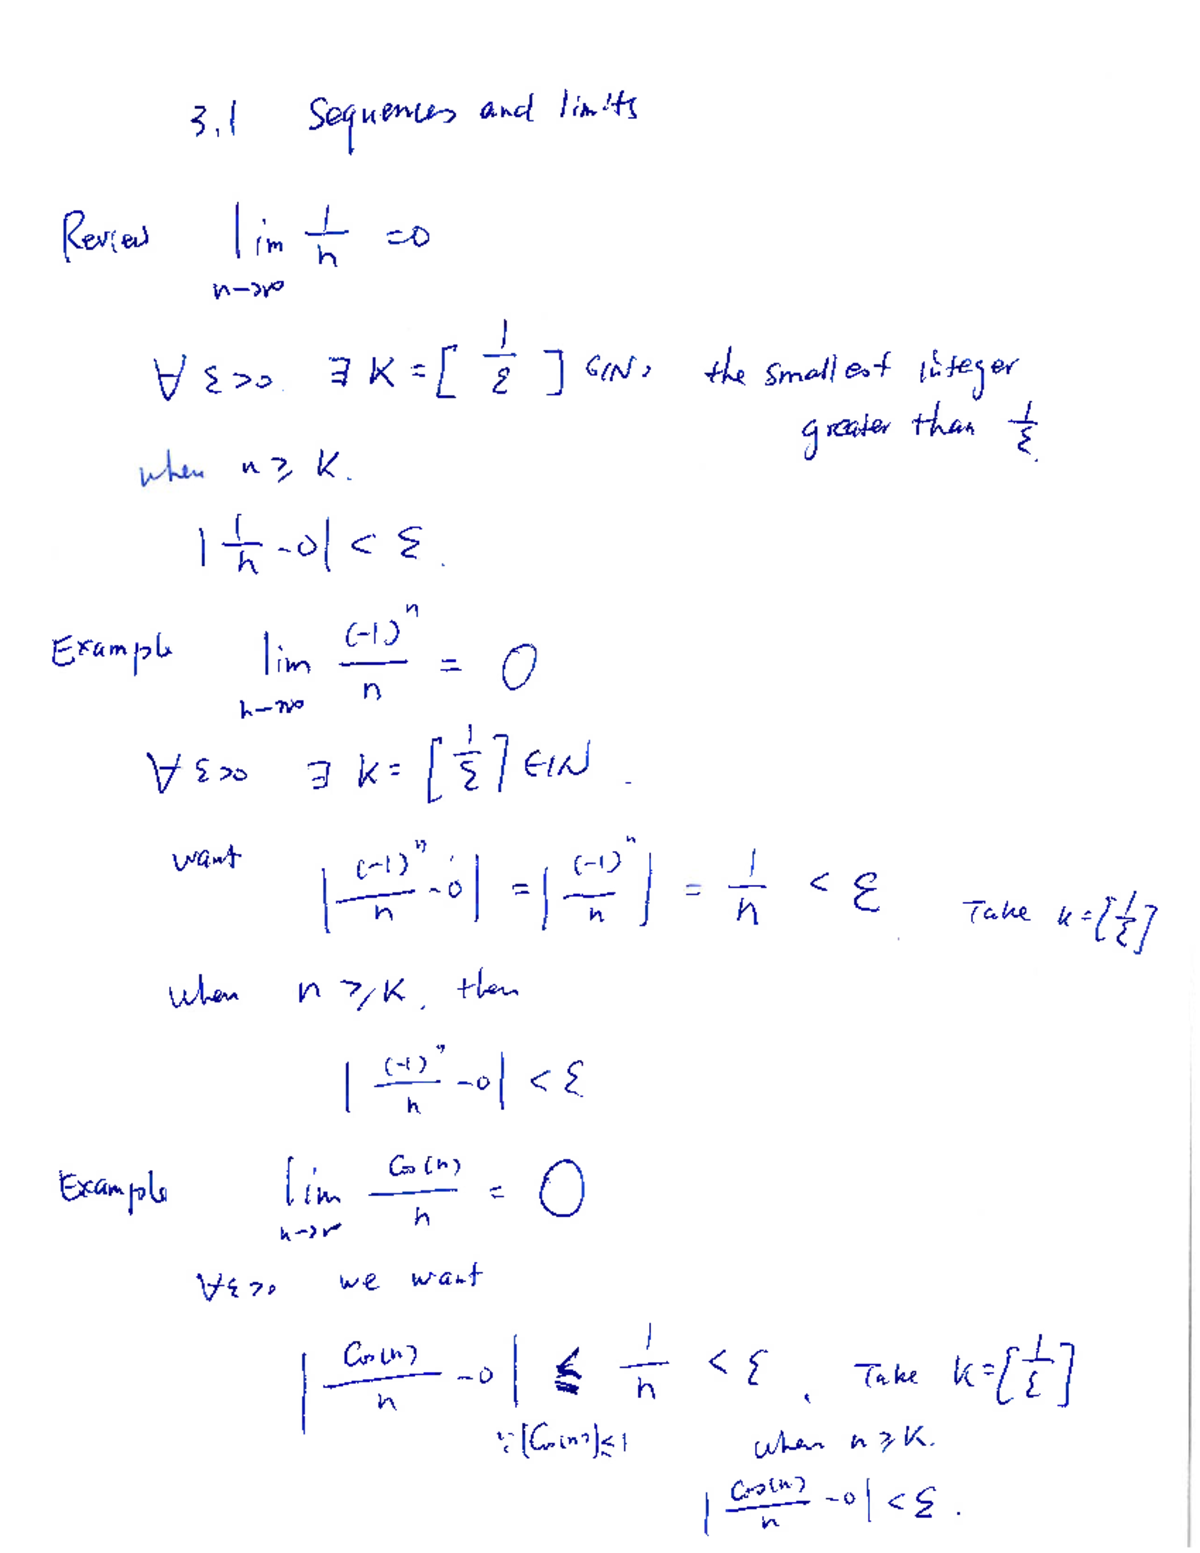 3.1 Sequences and limits
Review lim_{n→∞} 1/n = 0
∀ ε>0. ∃ K = [ 1/ε ] ∈ℕ, the smallest integer
greater than 1/ε.
when n ≥ K.
| 1/n - 0| < ε.
Example lim_{n→∞} (-1)^n / n = 0
∀ ε>0 ∃ K = [ 1/ε ] ∈ℕ.
want | (-1)^n / n - 0| = | (-1)^n / n | = 1/n < ε Take K = [ 1/ε ]
when n ≥ K, then
| (-1)^n / n - 0| < ε
Example lim_{n→∞} Cos(n) / n = 0
∀ε>0 we want
| Cos(n) / n - 0| ≤ 1/n < ε, Take K = [ 1/ε ]
∵ |Cos(n)| ≤ 1 when n ≥ K.
| Cos(n) / n - 0| < ε.